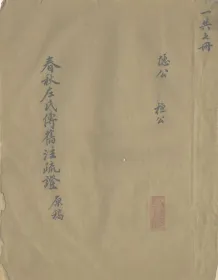 一共七册
隱公 桓公
春秋左氏傳舊注疏證 原稿